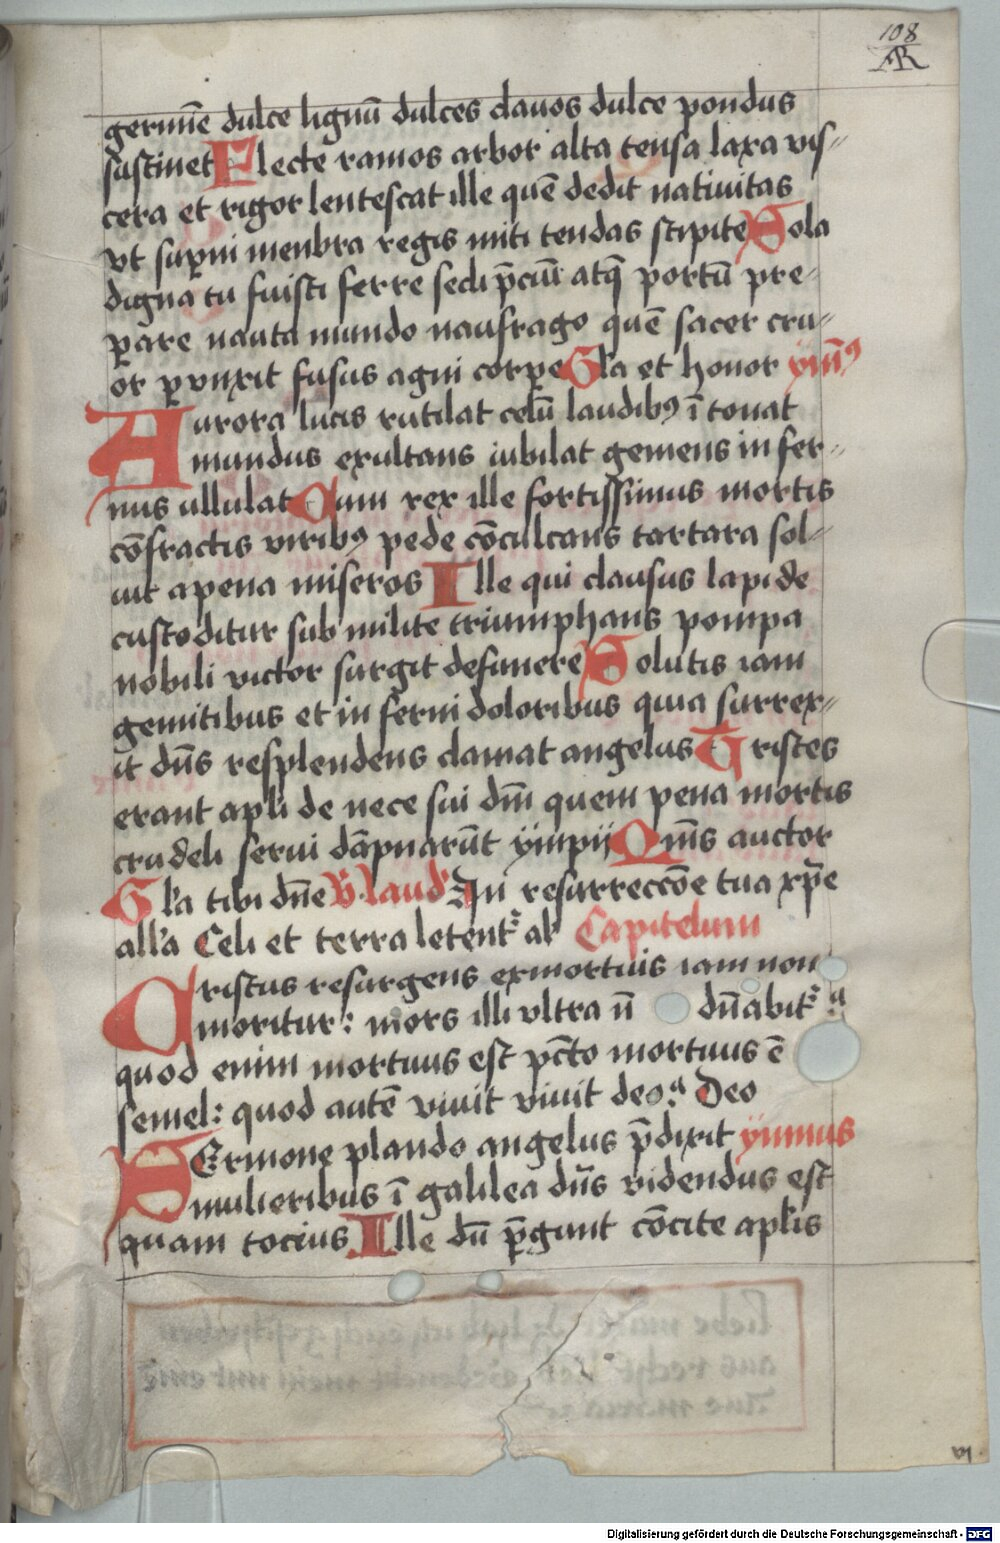 108
AR
germīe dulce lignū dulces clavos dulce pondus
sustinet Electe ramos arbor alta tensa laxa vis-
cera et rigor lentescat ille quē dedit nativitas
vt suꝑni menbra regis miti tendas stipite Sola
digna tu fuisti ferre secli p̄ciū atq̄ portū pre-
ꝑare nauta mundo naufrago quē sacer cru-
or ꝑvnxit fusus agni corpe Gl̄a et honor ym̄9
Aurora lucis rutilat celū laudib9 ī tonat
mundus exultans iubilat gemens in fer-
nus ullulat Cum rex ille fortissimus mortis
cōfractis virib9 pede cōculcans tartara sol-
uit a pena miseros Ille qui clausus lapide
custoditur sub milite triumphans pompa
nobili victor surgit de funere Solutis iam
gemitibus et in ferni doloribus quia surrex-
it dn̄s resplendens clamat angelus Tristes
erant apl̄i de nece sui dn̄i quem pena mortis
crudeli serui dāpnarūt ympij Qm̄s auctor
Gl̄a tibi dn̄e V laud In resurreccōe tua xp̄e
all̄a Celi et terra letent͛ al̄ Capitelum
Cristus resurgens ex mortuis iam non
moritur: mors illi vltra n̄ dn̄abit͛
quod enim mortuus est pc̄to mortuus ē
semel: quod autē viuit viuit deo. Deo
SErmone plando angelus p̄dixit ymnus
mulieribus ī galilea dn̄s videndus est
quam tocius Ille dū ꝑgunt cōcite apl̄is
VI
Digitalisierung gefördert durch die Deutsche Forschungsgemeinschaft - DFG